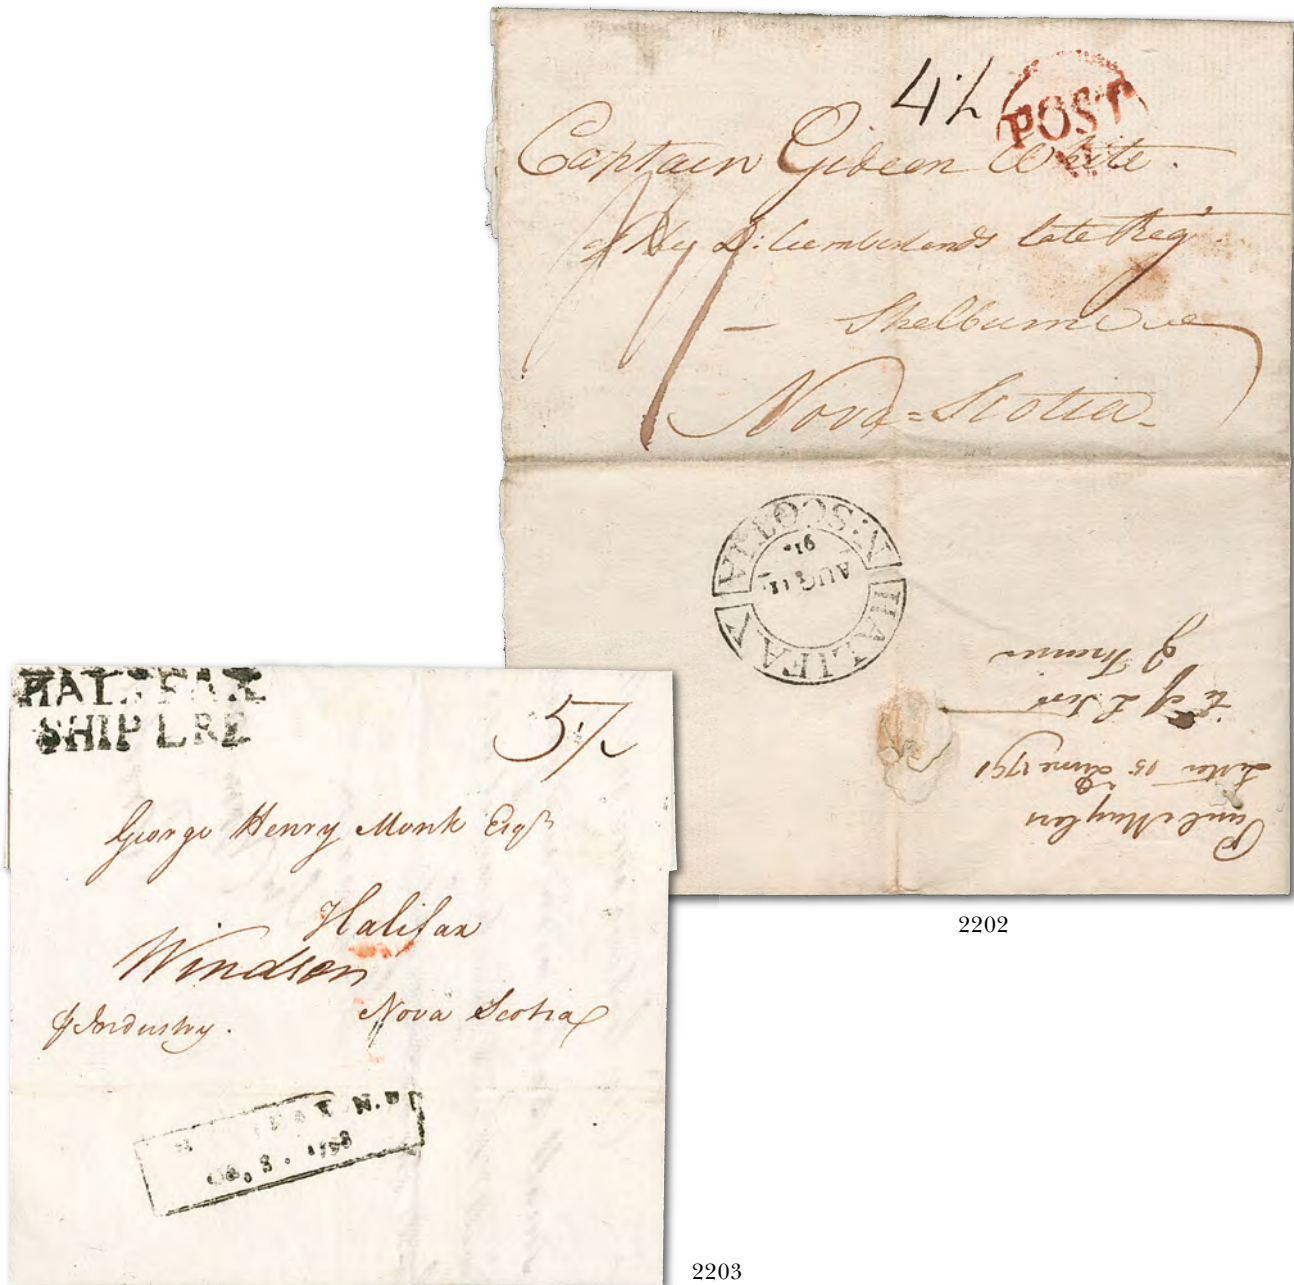 4½ POST
Captain Gideon White.
of Dy D: Cumberlands late Reg.t
– Shelburne
Nova=Scotia–
N:SCOTIA
HALIFAX
AUG 91.
Letter 15 June 1791
2202
HALIFAX
SHIP LRE
5/
George Henry Monk Esq.r
Halifax
Windsor
Nova Scotia
p Industry.
HALIFAX N.
1798
2203